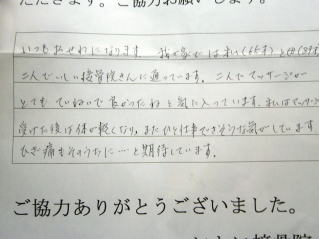 だきます。ご協力お願いします。
いつもおせわになります。我が家では私(65才)と母(89才)
二人でいしい接骨院さんに通っています。二人でマッサージが
とてもていねいで良かったねと気に入っています。私はマッサージ
受けた後は体が軽くなり、またひと仕事できそうな気がしています。
ひざ痛もそのうちに…と期待しています。
ご協力ありがとうございました。
接骨院